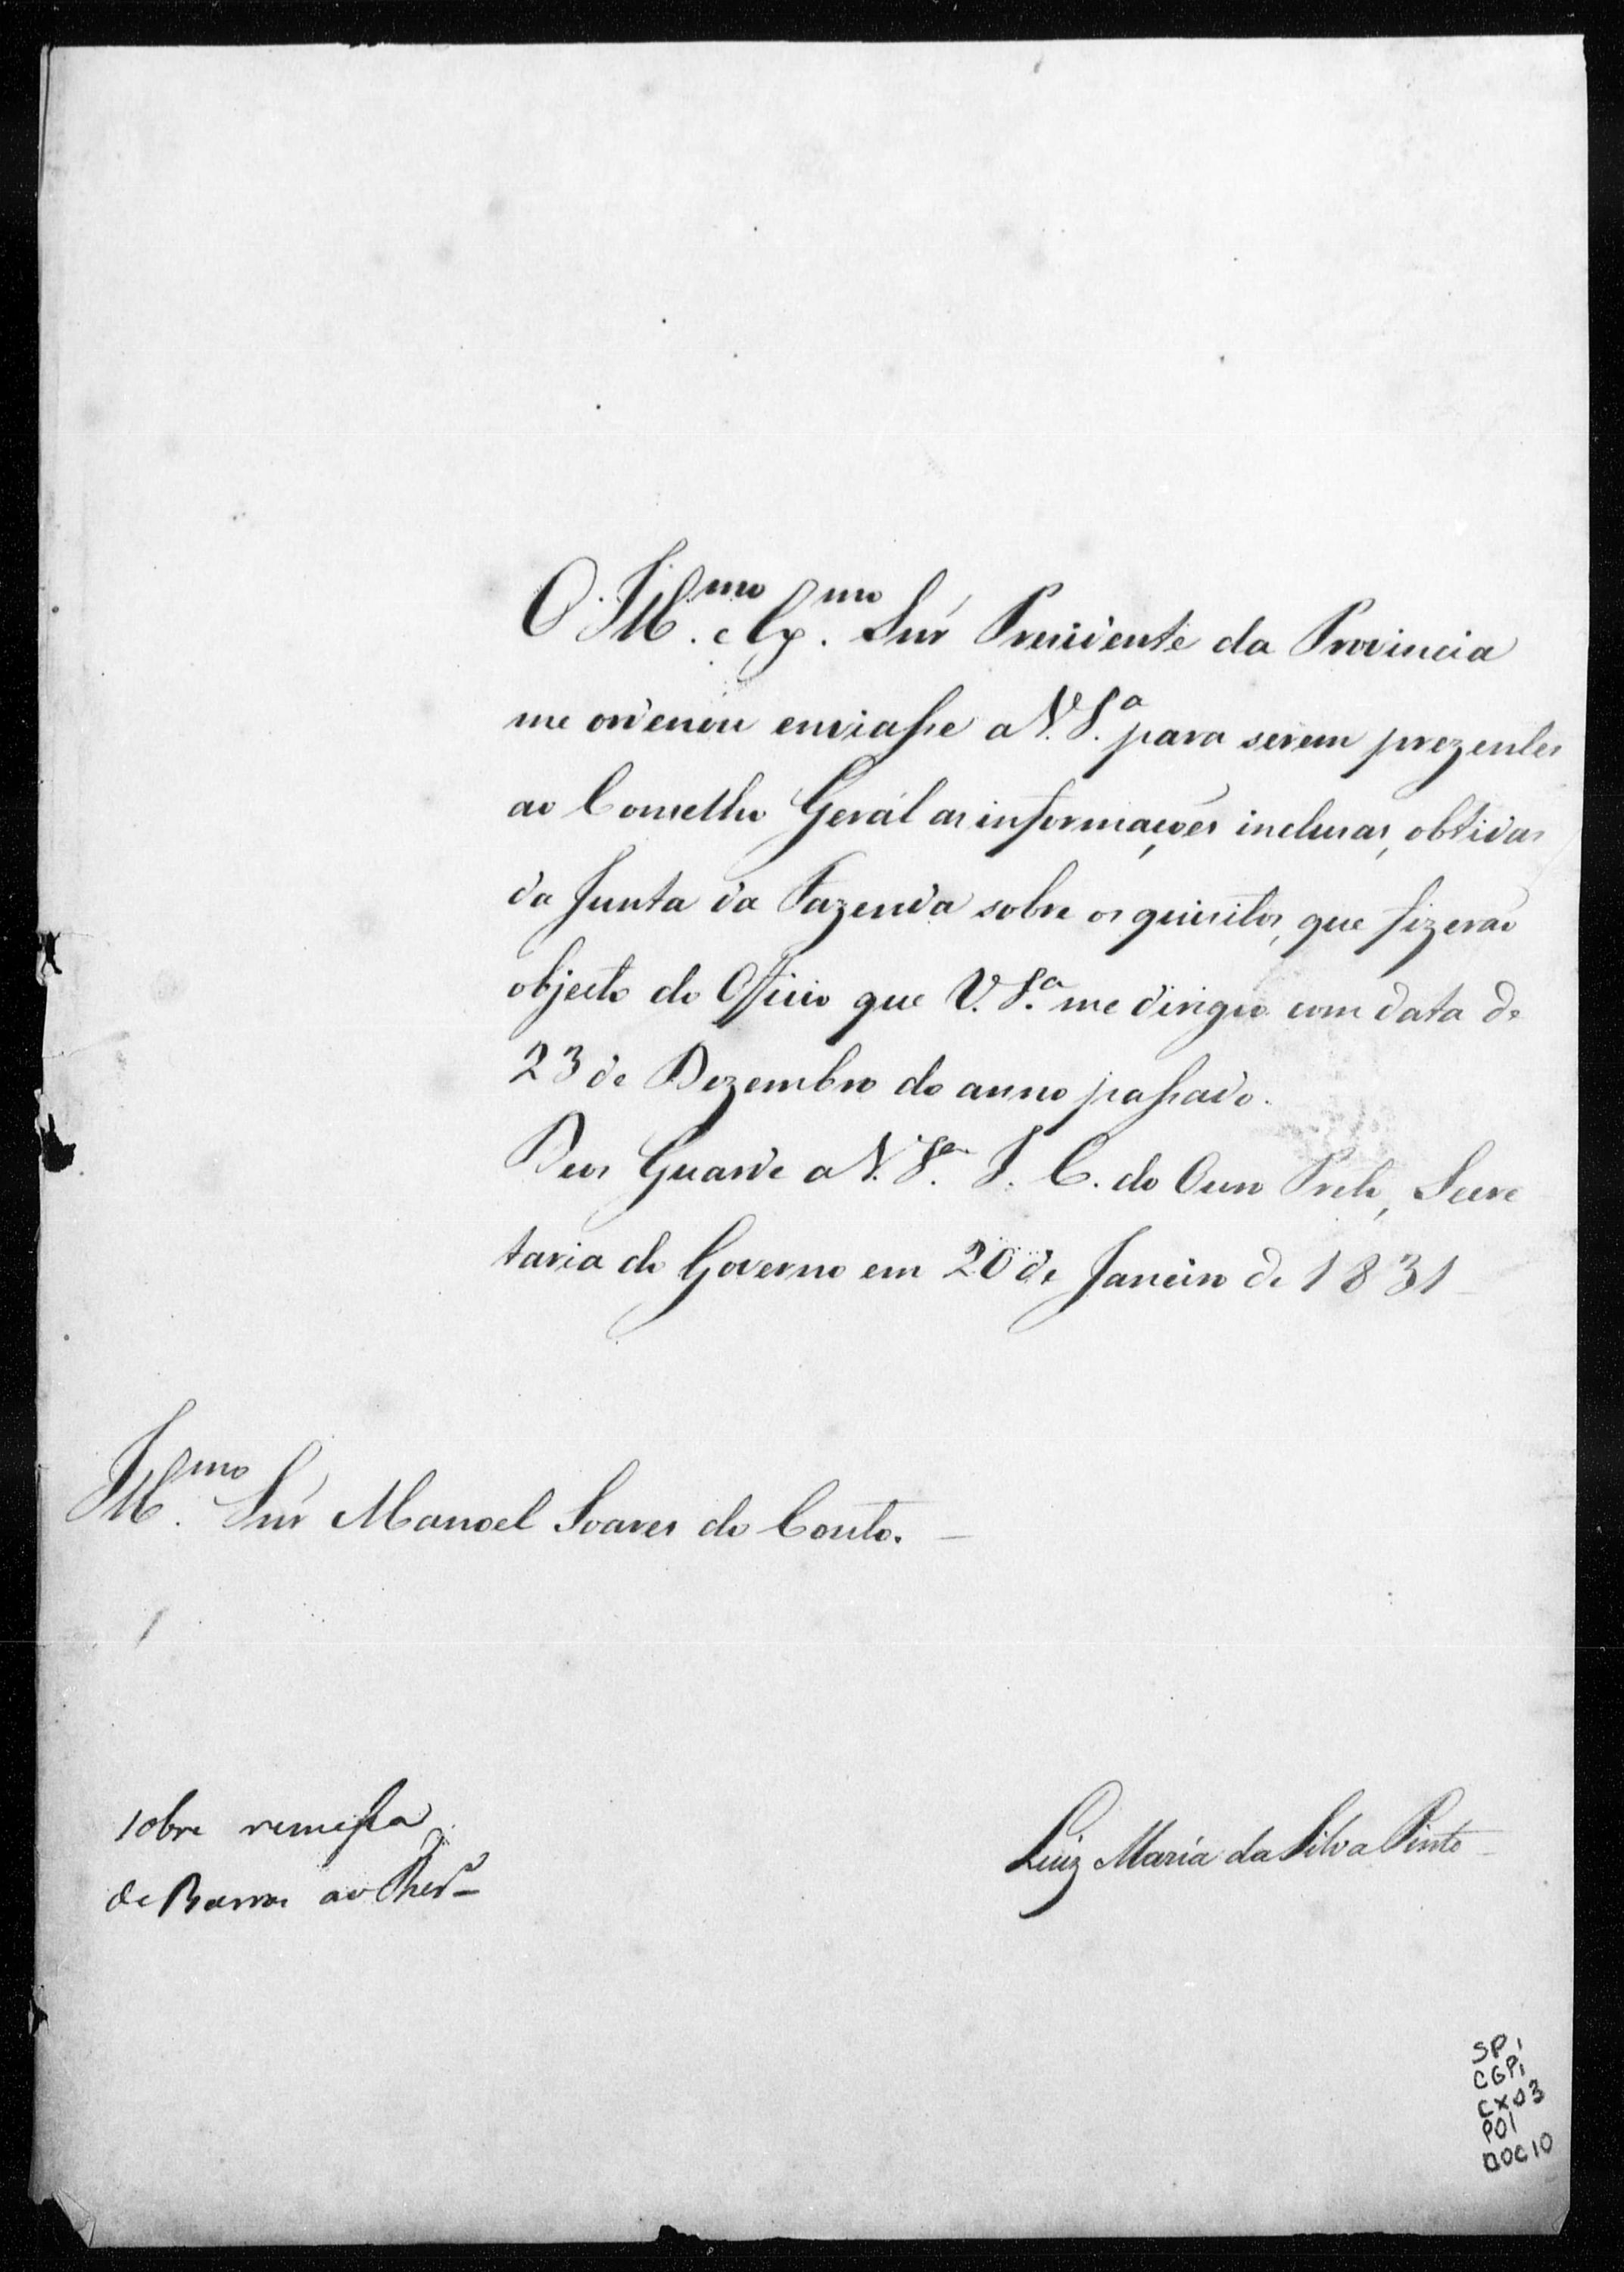 O Ill.mo e Ex.mo Snr̃ Presidente da Provincia
me ordenou enviasse a V. S.a para serem prezentes
ao Conselho Gerál as informações inclusas, obtidas
da Junta da Fazenda sobre os quisitos, que fizerão
objecto do Officio que V. S.a me dirigio com data de
23 de Dezembro do anno passado.
Deos Guarde a V. S.a I. C. do Ouro Preto, Secre
taria do Governo em 20 de Janeiro de 1831
Ill.mo Snr̃ Manoel Soares do Couto.
Luiz Maria da Silva Pinto
sobre remessa
de Barras ao
SP1
CGP1
CX03
P01
DOC10